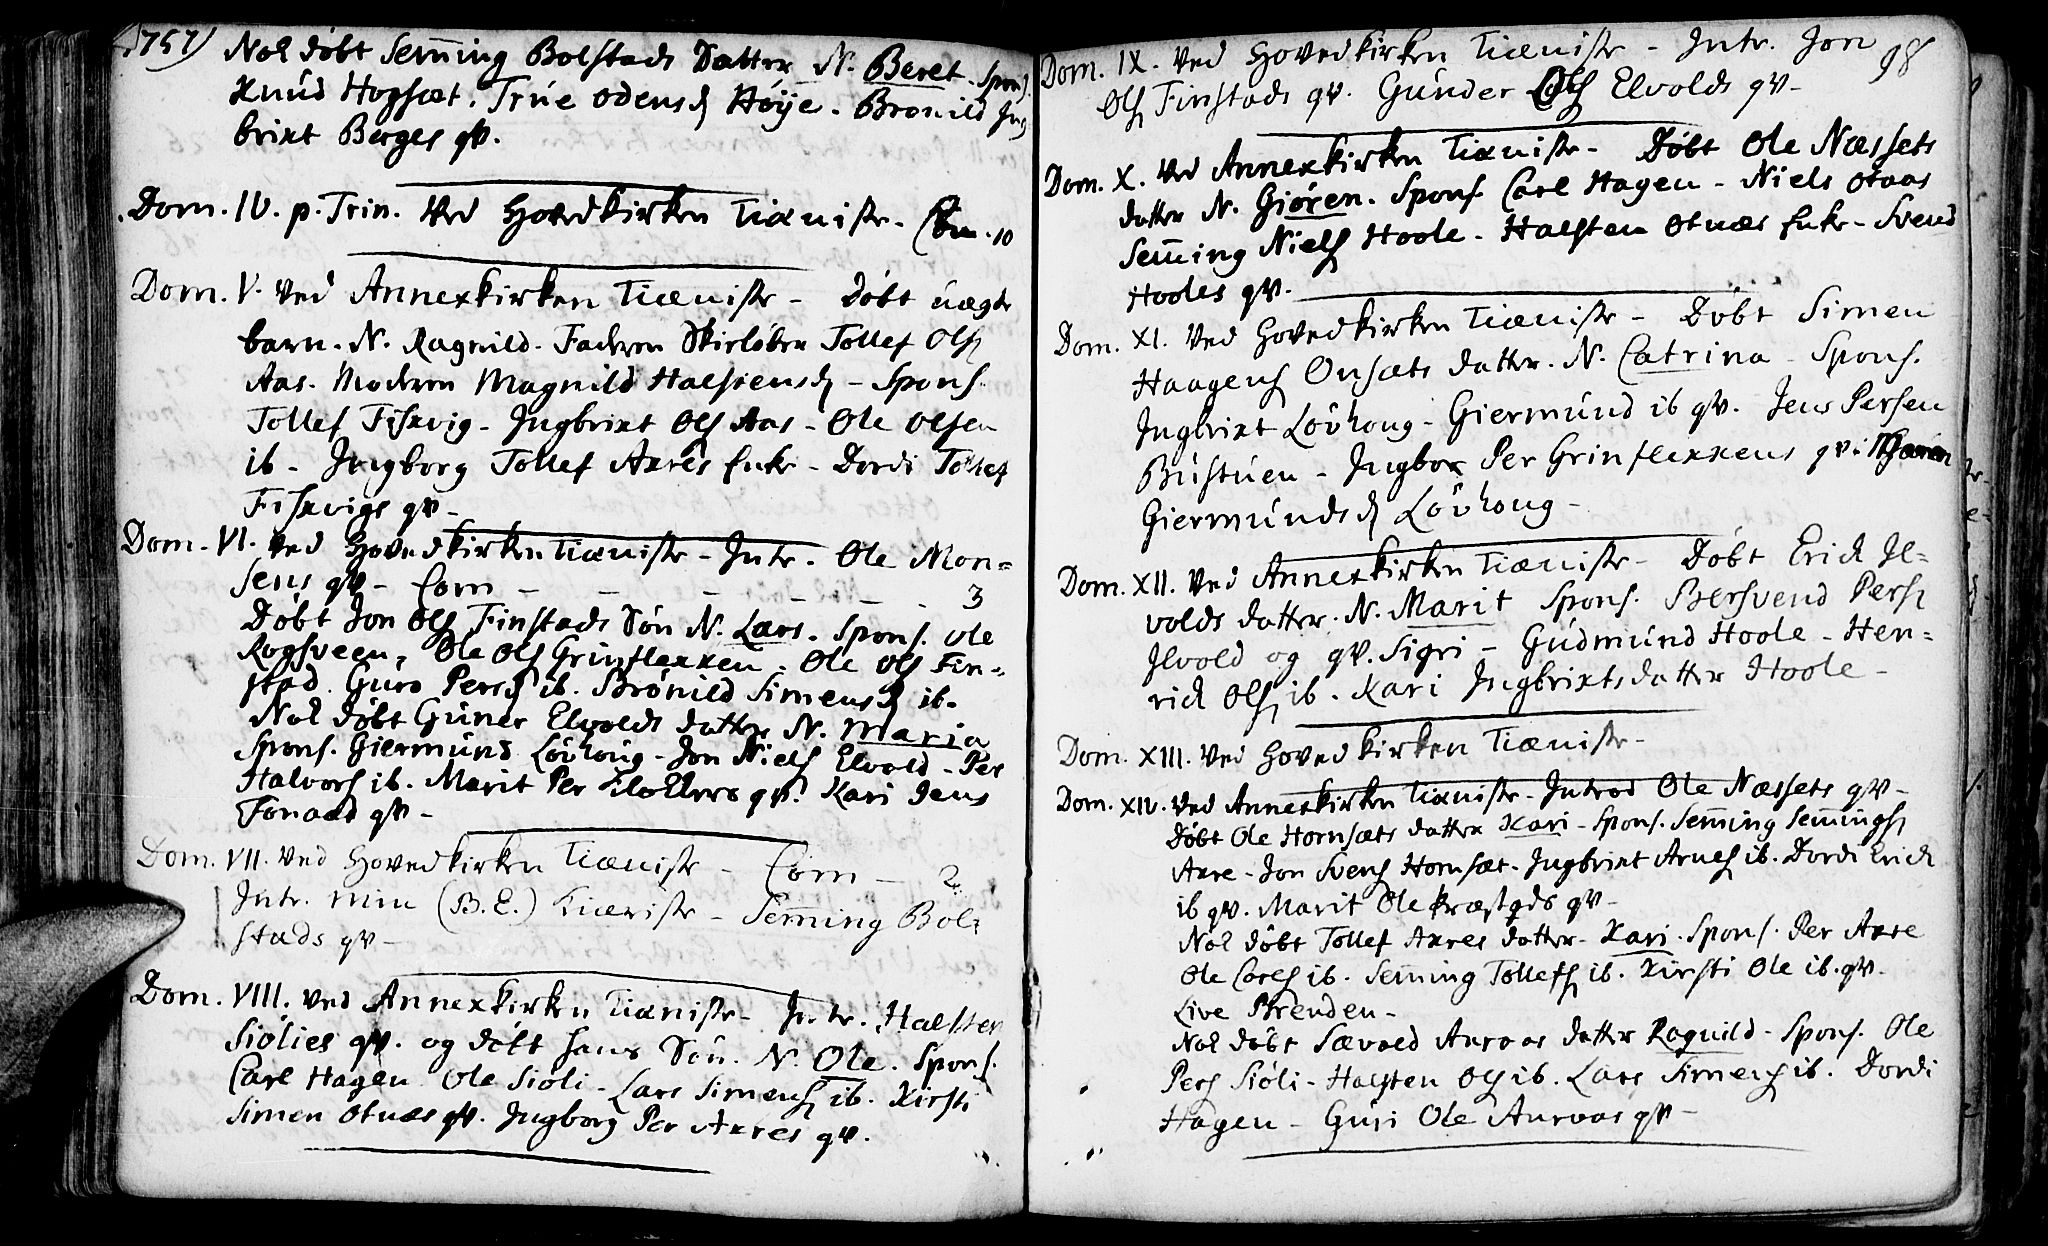 1757)
Nok döbt Sem̄ing Bolstads Datter N. Beret. Spons.
Knúd Hogsæt. Trúe Odensd. Höÿe. Bronild Ing
brixt Berges qv.
Dom. IV. p. Trin. Ved Hovedkirken Tienister - Com. 10
Dom. V. Ved Annexkirken Tienister - Döbt úægte
barn. N. Ragnild. Faderen Skirlöber Tollef Ols.
Aas. Moderen Magnild Halstensd. - Spons.
Tollef Fiskvig - Ingbrixt Ols. Aas - Ole Olsen
ib - Ingborg Tollef Axres Enke - Dordi Tollef
Fiskvigs qv -
Dom. VI. Ved Hovedkirken Tienister - Intr. Ole Mon=
sens qv - Com - - - - - - 3
Döbt Jon Ols. Finstads Sön N. Lars. Spons. Ole
Rogsveen, Ole Ols. Grinflexxen. Ole Ols. Fin=
stad. Guro Persd. ib. Brönild Simensd. ib.
Nok döbt Gúner Elvolds datter N. Maria
Spons. Giermúnd Lövhoúg - Jon Niels. Elvold - Per
Halvors. ib. Marit Per qv. Kari Jens
Fonaas qv -
Dom. VII. Ved Hovedkirken Tienister - Com - 2.
Intr. min (B. E.) Kiæriste - Sem̄ing Bol=
stads qv -
Dom. VIII. Ved Annexkirken Tienister - Intr. Halsten
Siölies qv. og döbt hans Sön. N. Ole. Spons.
Carl Hagen. Ole Siöli - Lars Simens. ib. Kirsti
Simen Otnæs qv. Ingborg Per Axres qv.
98
Dom. IX. Ved Hovedkirken Tienister - Intr. Jon
Ols. Finstads qv. Gúnder Ols. Elvolds qv -
Dom. X. Ved Annexkirken Tienister - Döbt Ole Næssets
datter N. Giören. Spons. Carl Hagen - Niels Otaas
Sem̄ing Niels. Hoole - Halsten Otnæs Enke - Svend
Hooles qv. -
Dom. XI. Ved Hovedkirken Tienister - Döbt Simen
Haagens. Onsæts datter. N. Catrina - Spons.
Ingbrixt Lövhoug - Giermúnd ib qv. Jens Persen
Bústúen - Ingbor Per Grinflexxens qv.
Giermúndsd. Lövhoug -
Dom. XII. Ved Annexkirken Tienister - Döbt Erick Il=
volds datter. N. Marit Spons. Bersvend Pers.
Ilvold og qv. Sigri - Gúdmúnd Hoole - Hen=
rick Ols. ib. Kari Ingbrixtsdatter Hoole -
Dom. XIII. Ved Hovedkirken Tienister -
Dom. XIV. Ved Annexkirken Tienister - Introd Ole Næssets qv -
Döbt Ole Hornsæts datter Kari - Spons. Sem̄ing Sem̄ings.
Axre - Jon Svens. Hornsæt - Ingbrixt Arnes. ib. Dordi Erick
ib qv. Marit Ole Kræstads qv -
Nok döbt Tollef Axres datter - Kari. Spons. Per Axre
Ole Carls. ib. Sem̄ing Tollefs. ib. Kirsti Ole ib. qv.
Live Brenden -
Nok döbt Sævold Aúroas datter Ragnild - Spons. Ole
Pers. Siöli - Halsten Ols. ib. Lars Simens. ib. Dordi
Hagen - Guri Ole Aúroas qv -